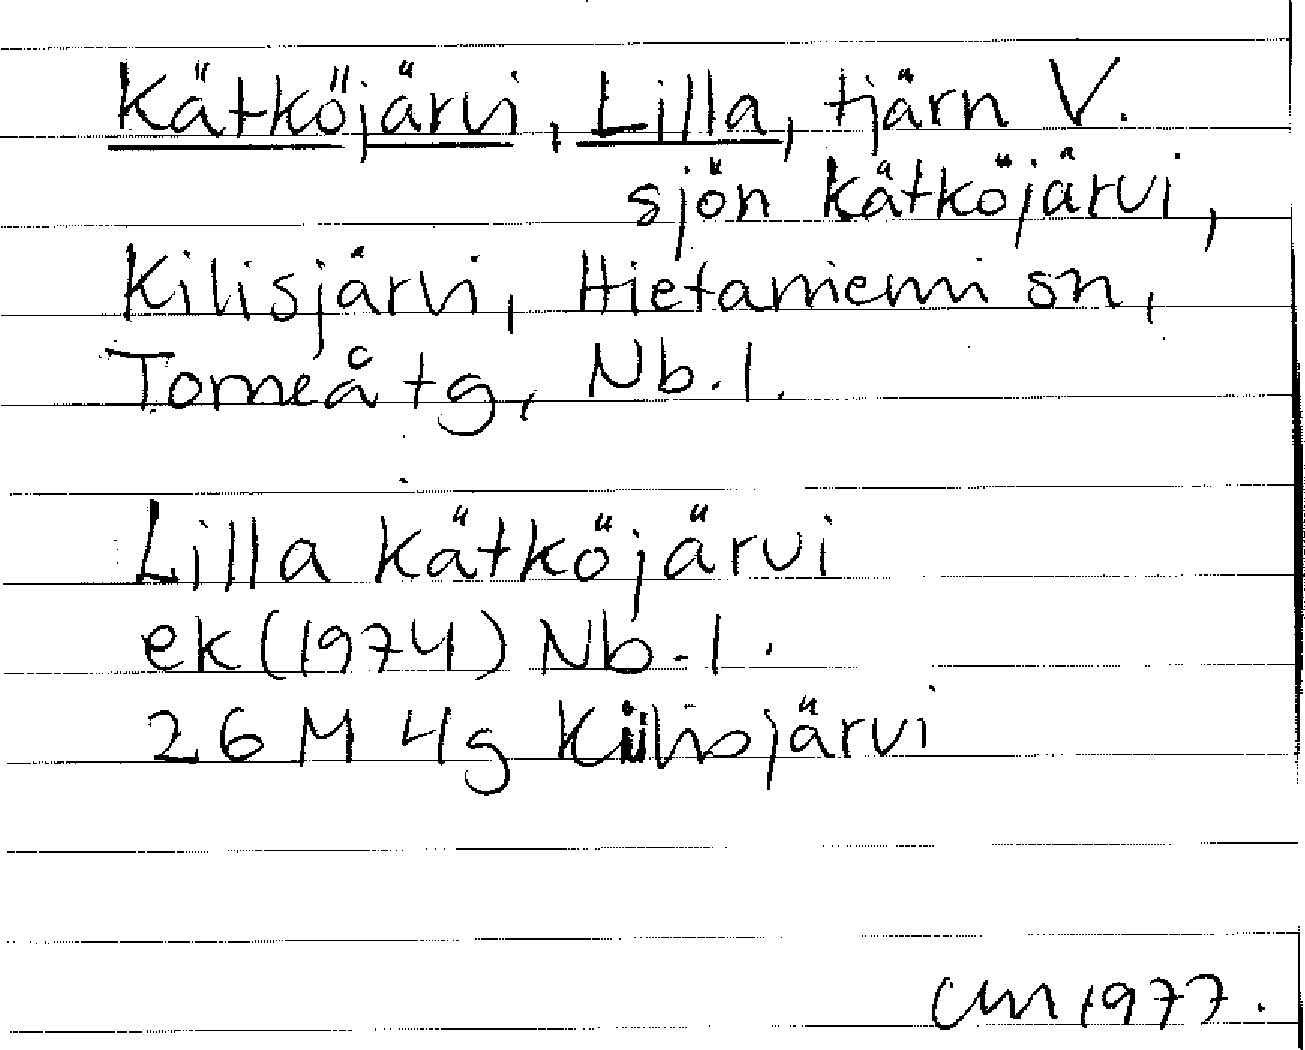 Kätköjärvi, Lilla, tjärn V.
sjön Kätköjärvi,
Kilisjärvi, Hietaniemi sn,
Torneå tg, Nb. l.
Lilla Kätköjärvi
ek (1974) Nb. l.
26 M 4g Kilisjärvi
1977.